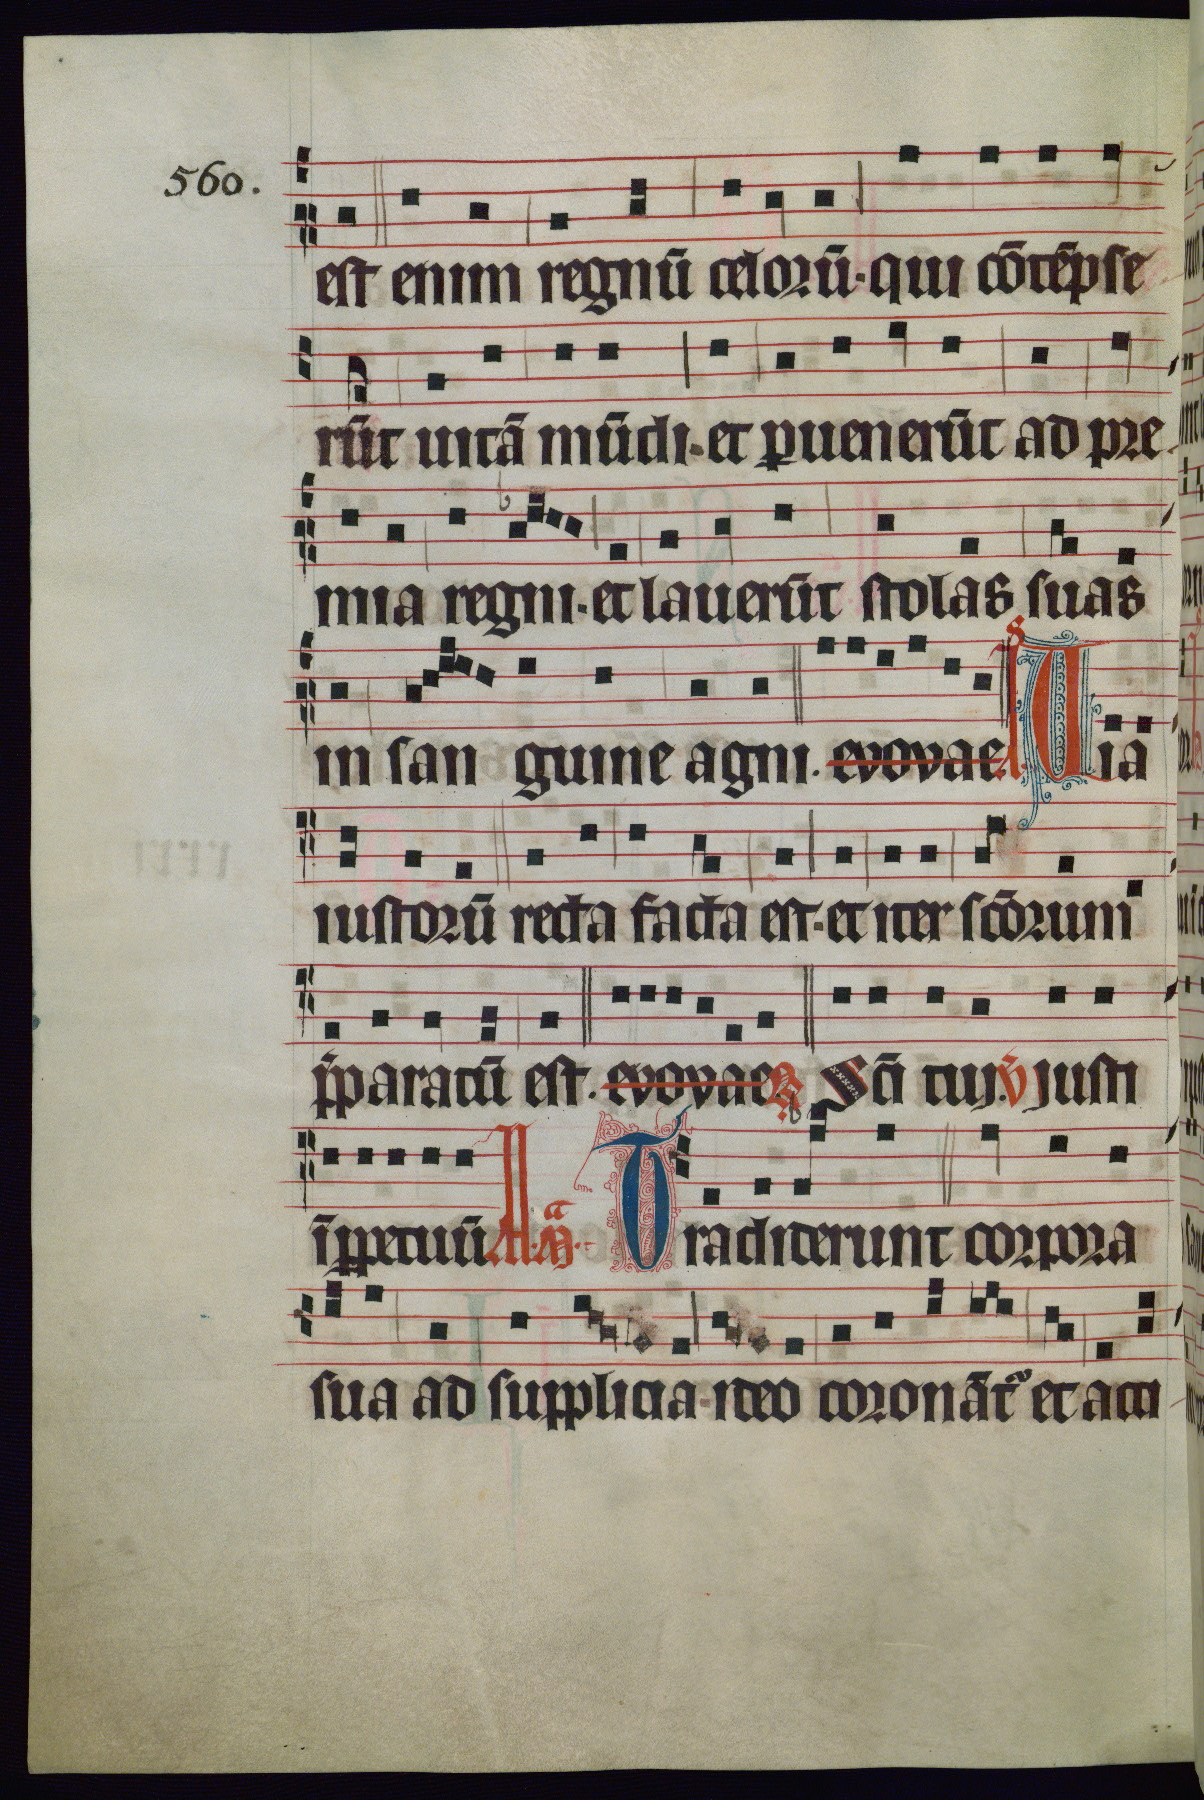 560.
est enim regnū celorū·qui cōtēpse
rūt uitā mūdi·et ꝑuenerūt ad pre
mia regni·et lauerūt stolas suas
in san guine agni. evovae a. Uia
iustorū recta facta est·et iter scōrum
p̄paratū est. evovae ℟ Scī tuj. v̄ justi
īꝑpetuū Ad. mag̃ᵃ Tradiderunt corpora
sua ad supplicia·ideo coronāt᷑ et acci